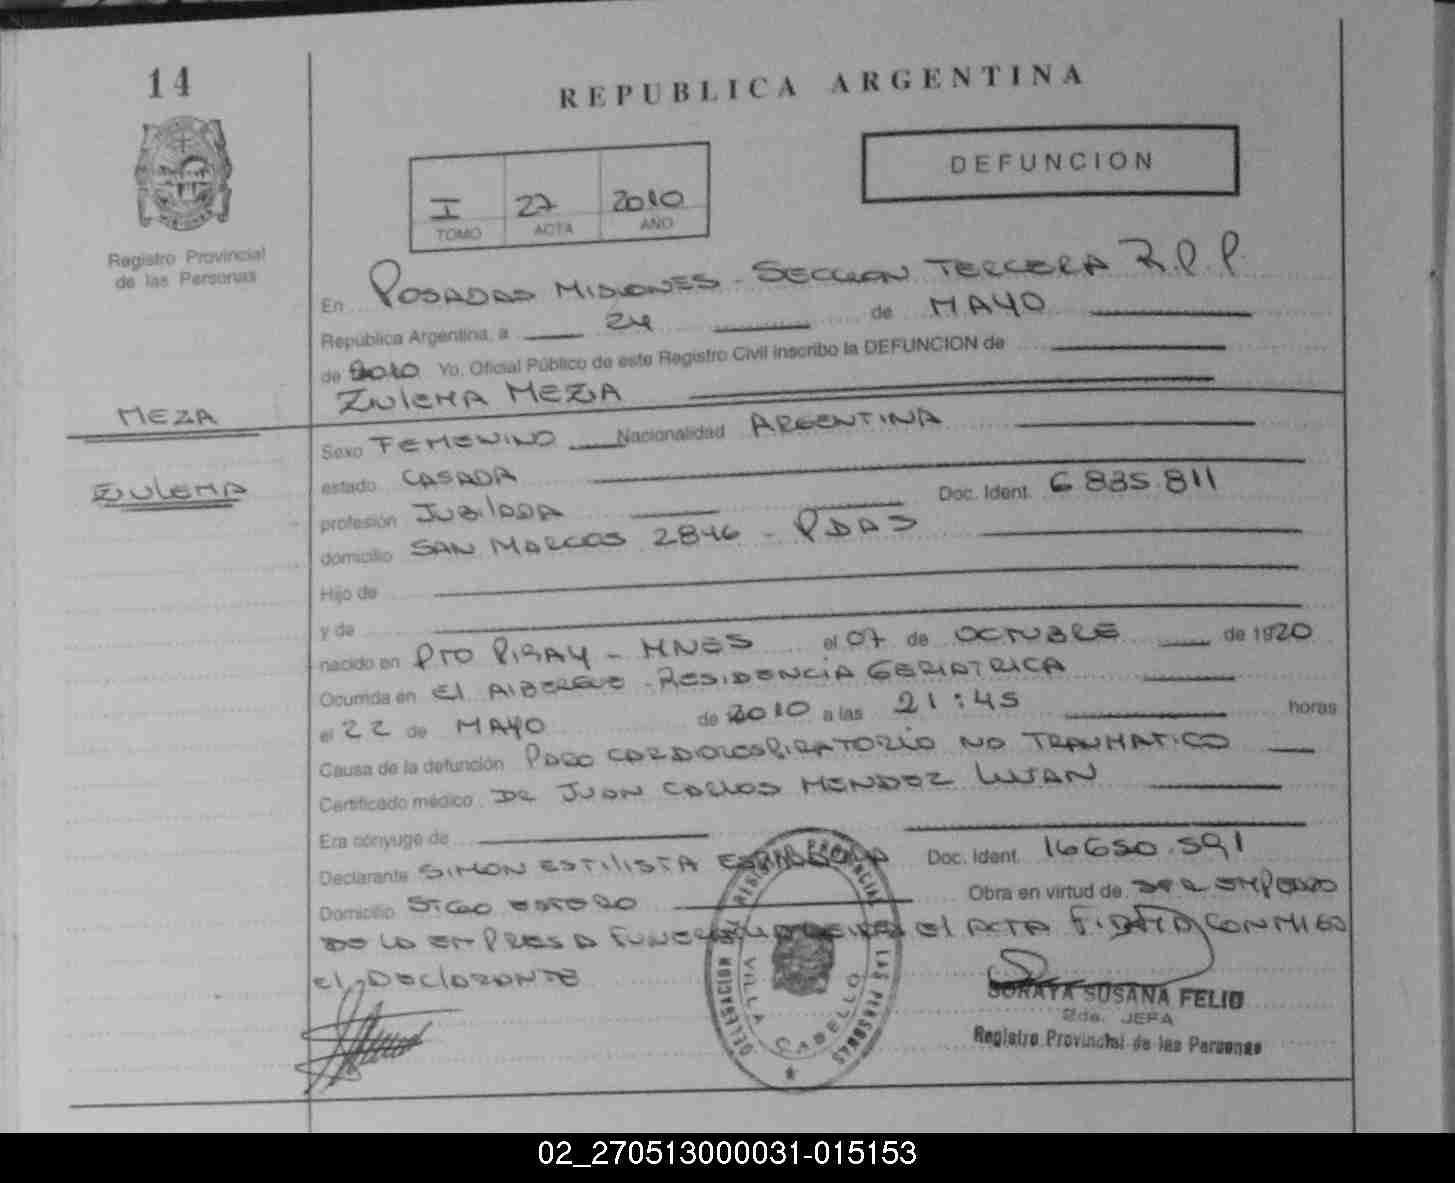 14
REPUBLICA ARGENTINA
DEFUNCION
I 27 2010
TOMO ACTA AÑO
Registro Provincial
de las Personas
En POSADAS MISIONES - SECCION TERCERA R.P.P.
República Argentina, a 24 de MAYO
de 2010 Yo, Oficial Público de este Registro Civil inscribo la DEFUNCION de
ZULEMA MEZA
MEZA
ZULEMA
Sexo FEMENINO Nacionalidad ARGENTINA
estado CASADA
profesión JUBILADA Doc. Ident. 6 835.811
domicilio SAN MARCOS 2846 - PDAS
Hijo de
y de
nacido en PTO PIRAY - MNES el 07 de OCTUBRE de 1920
Ocurrida en EL ALBERGUE - RESIDENCIA GERIATRICA
el 22 de MAYO de 2010 a las 21:45 horas
Causa de la defunción PARO CARDIORESPIRATORIO NO TRAUMATICO
Certificado médico DR JUAN CARLOS MENDEZ LUJAN
Era cónyuge de
Declarante SIMON ESTILISTA Doc. Ident. 16650.591
Domicilio STGO ESTERO Obra en virtud de SER EMPLEADO
DE LA EMPRESA EL ACTA FIRMA CONMIGO
EL DECLARANTE
REGISTRO PROVINCIAL DE LAS PERSONAS
DELEGACION
VILLA CABELLO
SORAYA SUSANA FELIO
2da. JEFA
Registro Provincial de las Personas
02_270513000031-015153